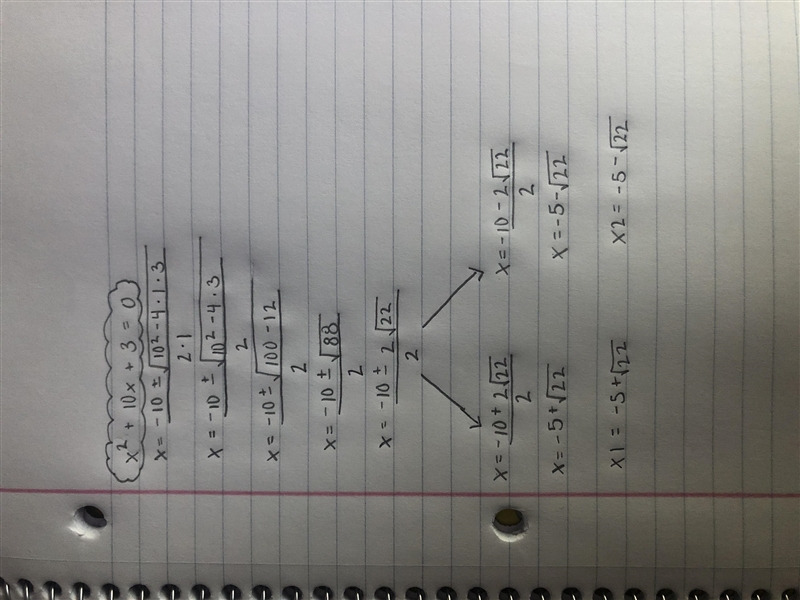 x² + 10x + 3 = 0
x = -10 ± √10² - 4 · 1 · 3
2 · 1
x = -10 ± √10² - 4 · 3
2
x = -10 ± √100 - 12
2
x = -10 ± √88
2
x = -10 ± 2√22
2
x = -10 + 2√22
2
x = -5 + √22
x1 = -5 + √22
x = -10 - 2√22
2
x = -5 - √22
x2 = -5 - √22